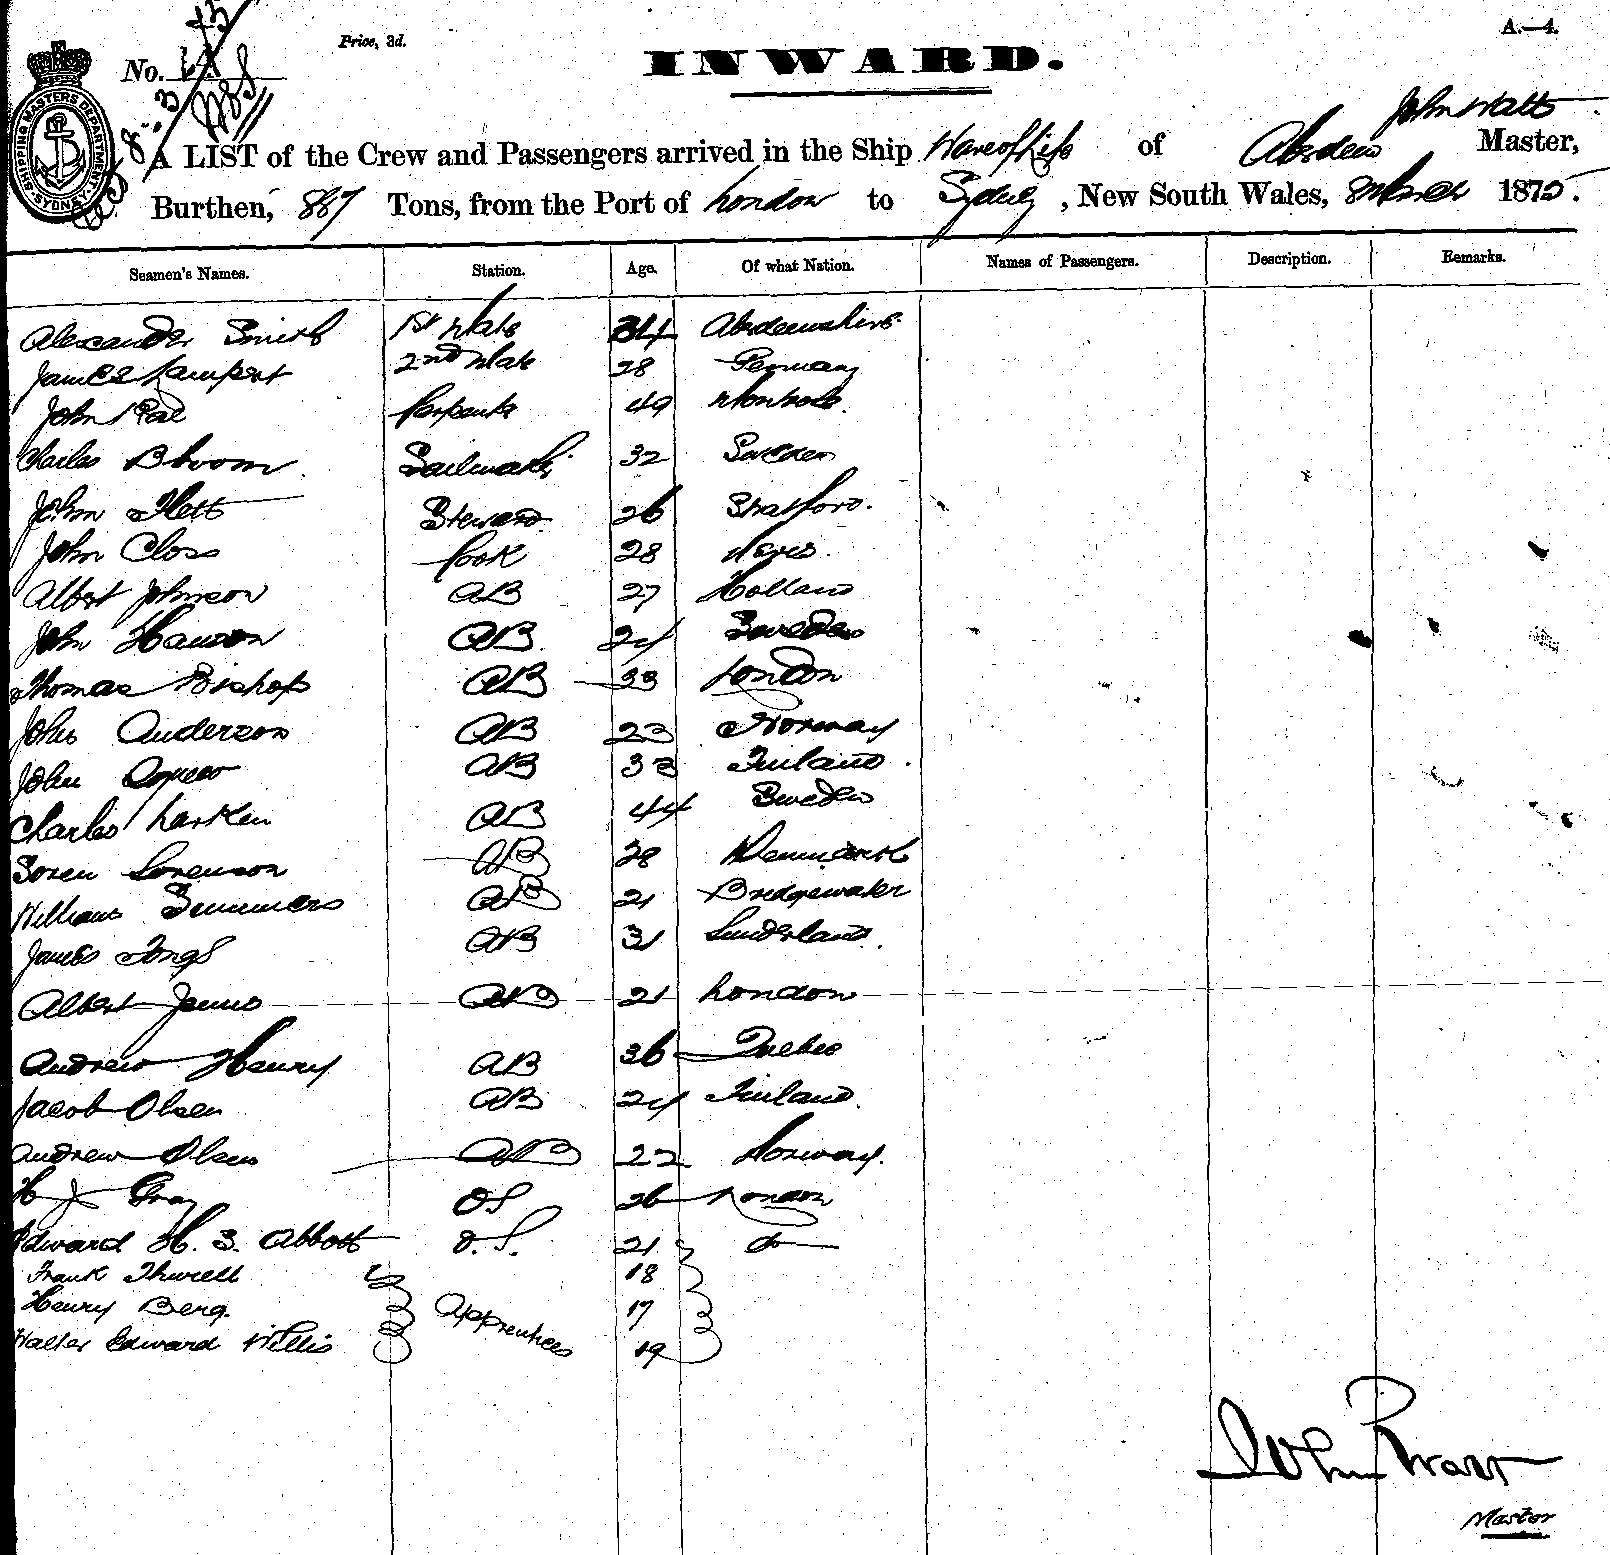 A.—4.
Price, 3d.
No.
INWARD.
SHIPPING MASTERS DEPARTMENT SYDNEY
John Watt
A LIST of the Crew and Passengers arrived in the Ship Wave of Life of Aberdeen Master,
Burthen, 887 Tons, from the Port of London to Sydney, New South Wales, 8 March 1875.
Seamen's Names. Station. Age. Of what Nation. Names of Passengers. Description. Remarks.
Alexander Smith 1st Mate 34 Aberdeenshire
James Lampert 2nd Mate 28 Germany
John Rae Carpenter 49 Montrose
Charles Bloom Sailmaker 32 Sweden
John Flett Steward 26 Stratford.
John Closs Cook 28
Albert Johnson AB 27 Holland
John Hanson AB 24 Sweden
Thomas Bishop AB 33 London
John Anderson AB 23 Norway
John AB 33 Finland
Charles Larken AB 44 Sweden
Soren Sorenson AB 28 Denmark
William Summers AB 21 Bridgewater
James Tongs AB 31 Sunderland
Albert AB 21 London
Andrew Henry AB 36 Quebec
Jacob Olsen AB 24 Finland
Andrew Olsen AB 22 Norway.
H J Gray OS 26 London
Edward H. S. Abbott O.S. 21 do
Frank 18
Henry Berg. Apprentices 17
Walter Edward Willis 19
John Watt
Master